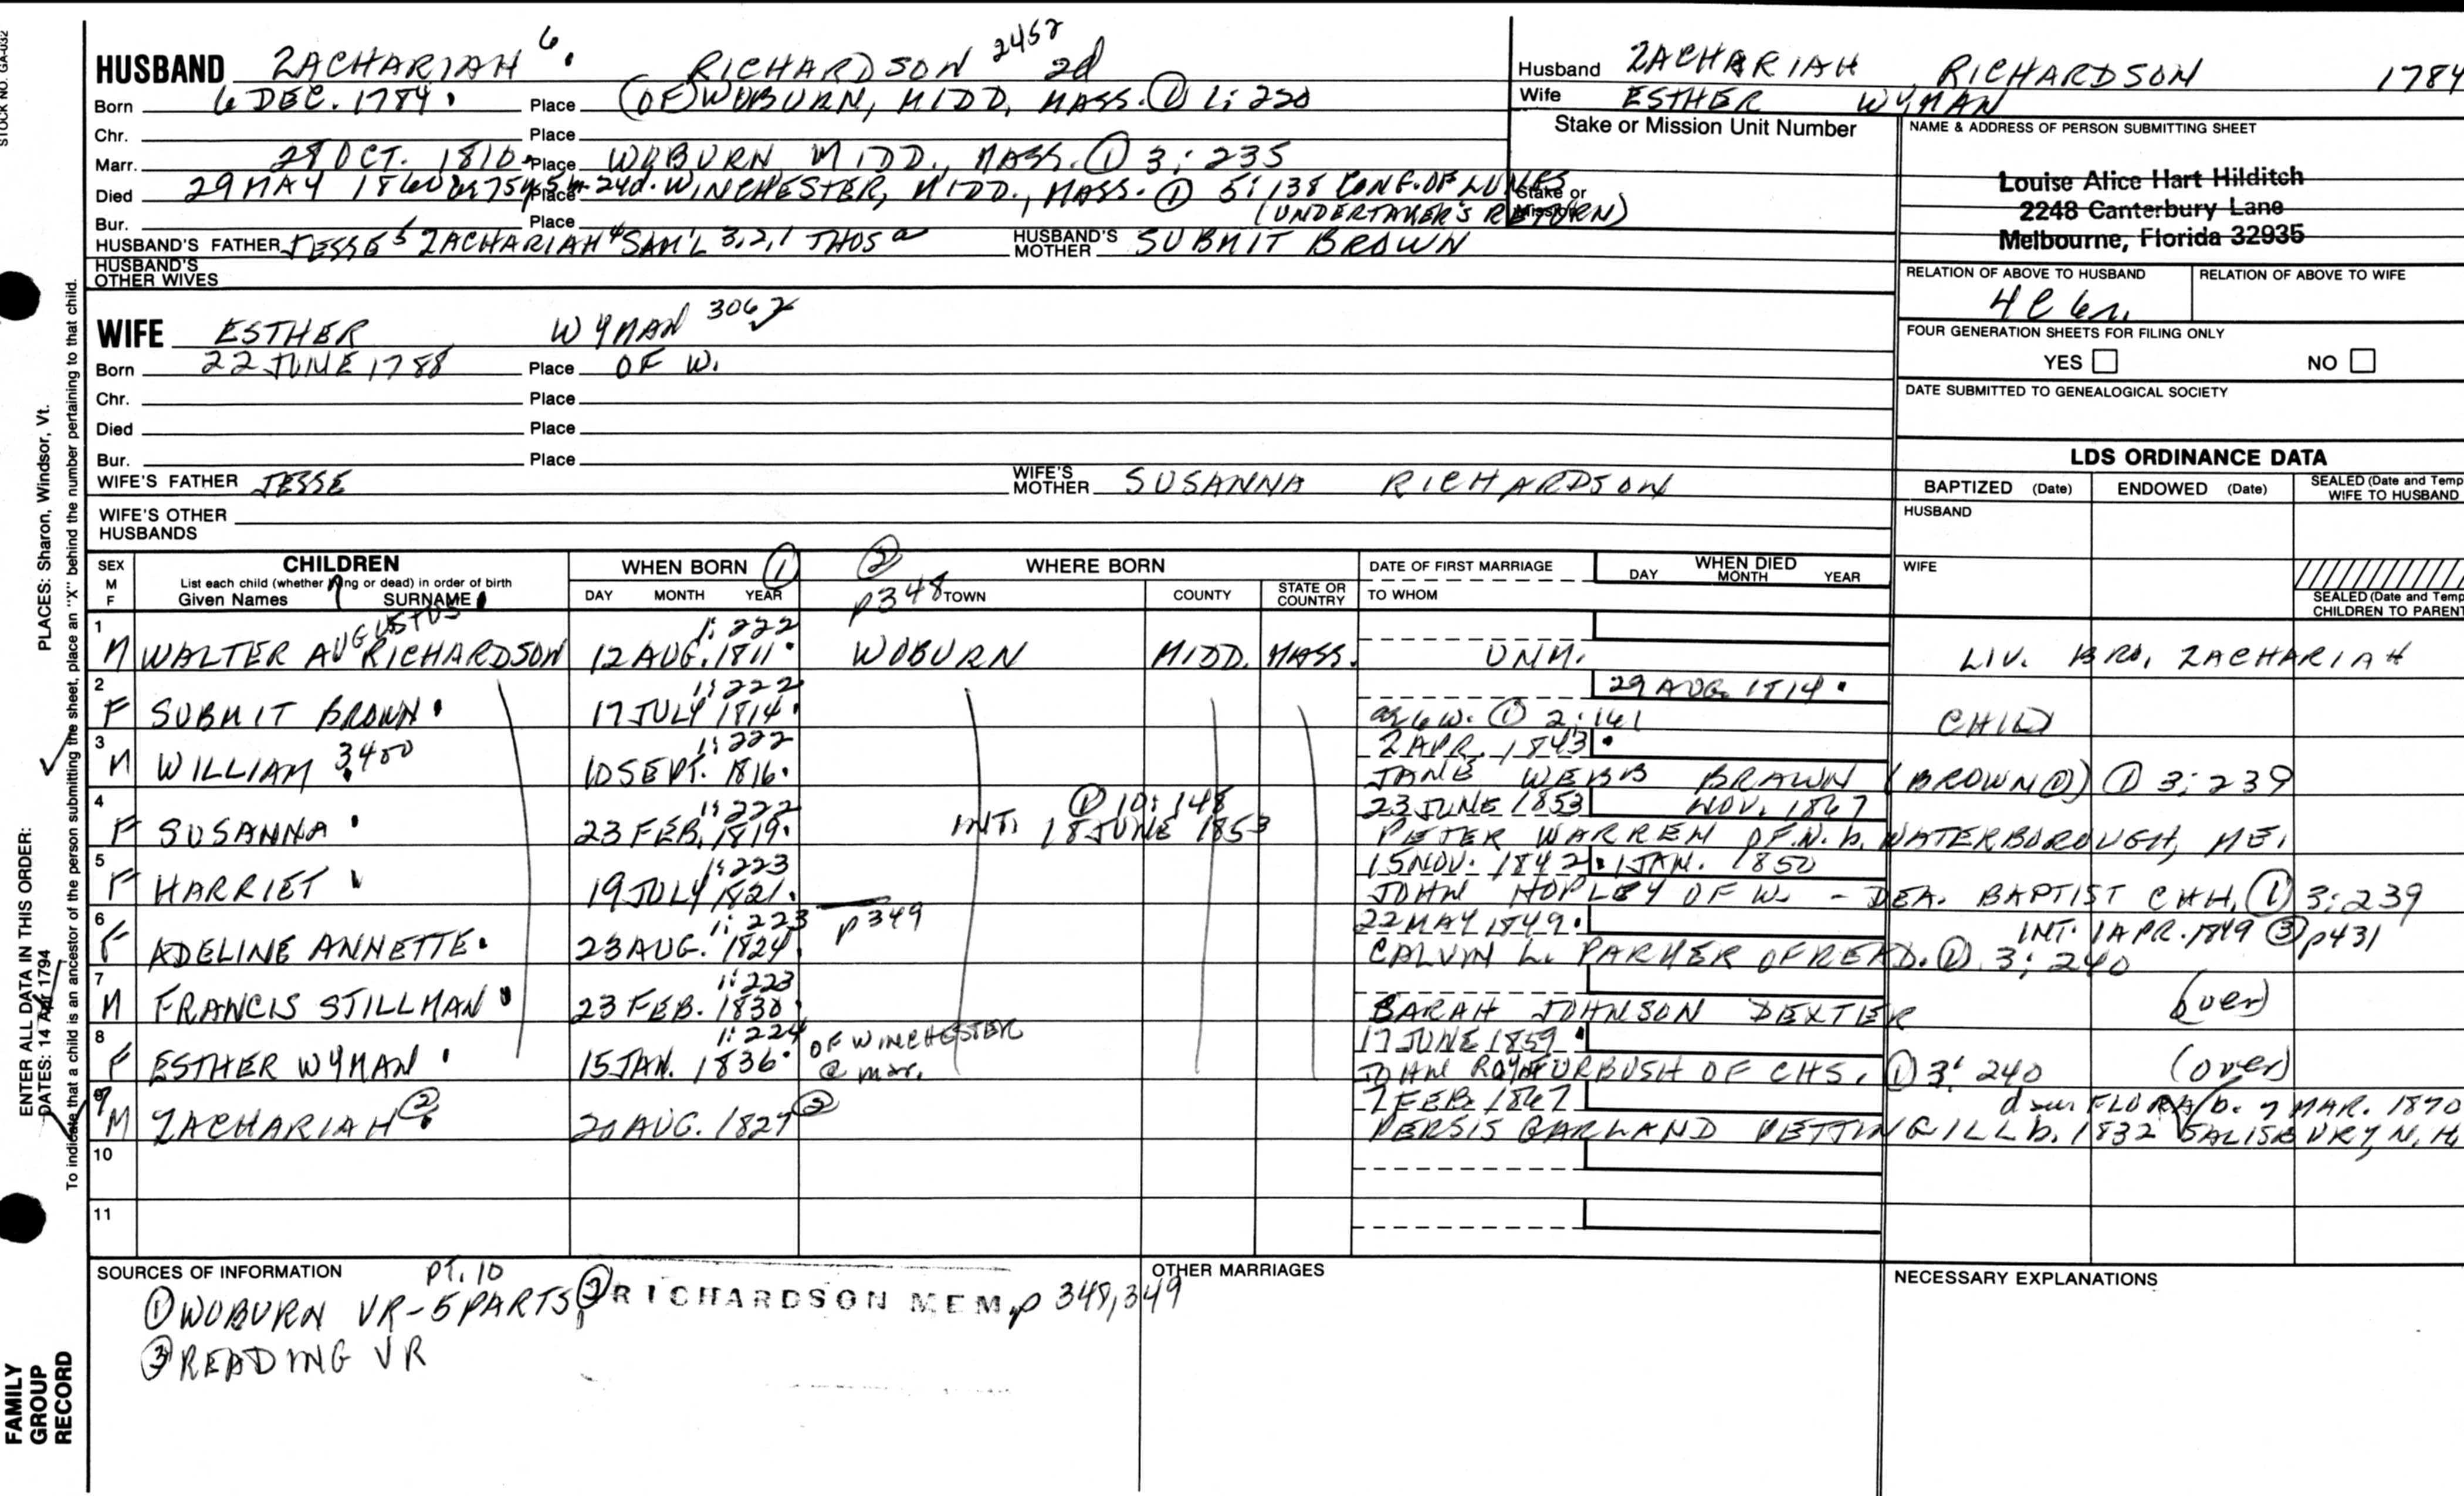 STOCK NO. GA-032
HUSBAND ZACHARIAH 6. RICHARDSON 2452 2d
Born 6 DEC. 1784. Place (OF) WOBURN, MIDD, MASS. ① 1:220
Chr. Place
Marr. 28 OCT. 1810. Place WOBURN MIDD., MASS. ① 3:235
Died 29 MAY 1860 ae 75y 5m 24d. Place WINCHESTER, MIDD., MASS. ① 5:138 CONG. OF LUNGS
Bur. Place (UNDERTAKER'S RETURN)
HUSBAND'S FATHER JESSE 5 ZACHARIAH 4 SAM'L 3,2,1 THOS a HUSBAND'S MOTHER SUBMIT BROWN
HUSBAND'S OTHER WIVES
WIFE ESTHER WYMAN 3062
Born 22 JUNE 1788 Place OF W.
Chr. Place
Died Place
Bur. Place
WIFE'S FATHER JESSE WIFE'S MOTHER SUSANNA RICHARDSON
WIFE'S OTHER HUSBANDS
Husband ZACHARIAH RICHARDSON 1784
Wife ESTHER WYMAN
Stake or Mission Unit Number
Stake or Mission
NAME & ADDRESS OF PERSON SUBMITTING SHEET
Louise Alice Hart Hilditch
2248 Canterbury Lane
Melbourne, Florida 32935
RELATION OF ABOVE TO HUSBAND RELATION OF ABOVE TO WIFE
4C 6r.
FOUR GENERATION SHEETS FOR FILING ONLY
YES NO
DATE SUBMITTED TO GENEALOGICAL SOCIETY
LDS ORDINANCE DATA
BAPTIZED (Date) ENDOWED (Date) SEALED (Date and Temp WIFE TO HUSBAND
HUSBAND
WIFE
SEALED (Date and Temp CHILDREN TO PARENT
SEX M F CHILDREN WHEN BORN ① ② WHERE BORN DATE OF FIRST MARRIAGE WHEN DIED
List each child (whether living or dead) in order of birth
Given Names SURNAME DAY MONTH YEAR p348 TOWN COUNTY STATE OR COUNTRY TO WHOM DAY MONTH YEAR
AUGUSTUS 1:222
1 M WALTER AUG RICHARDSON 12 AUG. 1811. WOBURN MIDD. MASS. UNM. LIV. BRO. ZACHARIAH
1:222 29 AUG. 1814.
2 F SUBMIT BROWN. 17 JULY 1814. ae 6w. ① 2:161 CHILD
1:222 2 APR. 1843.
3 M WILLIAM 3400 10 SEPT. 1816. JANE WEBB BRAWN (BROWN ②) ① 3:239
1:222 ① 10:148 23 JUNE 1853 NOV. 1867
4 F SUSANNA 23 FEB. 1819. INT. 18 JUNE 1853 PETER WARREN OF N. b. WATERBOROUGH, ME.
1:223 15 NOV. 1842. 1 JAN. 1850
5 F HARRIET 19 JULY 1821. JOHN HOPLEY OF W. - DEA. BAPTIST CHH. ① 3:239
1:223 p349 22 MAY 1849. INT. 1 APR. 1849 ③ p431
6 F ADELINE ANNETTE. 23 AUG. 1824. CALVIN L. PARKER OF READ. ① 3:240
1:223
7 M FRANCIS STILLMAN 23 FEB. 1830. SARAH JOHNSON DEXTER (over)
1:224 OF WINCHESTER 17 JUNE 1859.
8 F ESTHER WYMAN. 15 JAN. 1836. @ mar. JOHN ROY FURBUSH OF CHS. ① 3:240 (over)
7 FEB. 1867 FLORA b. 7 MAR. 1870
9 M ZACHARIAH ② 20 AUG. 1827 ② PERSIS GARLAND PETTINGILL b. 1832 SALISBURY, N.H.
10
11
SOURCES OF INFORMATION PT. 10
① WOBURN VR - 5 PARTS, ② RICHARDSON MEM. p 348, 349
③ READING VR
OTHER MARRIAGES
NECESSARY EXPLANATIONS
PLACES: Sharon, Windsor, Vt.
To indicate that a child is an ancestor of the person submitting the sheet, place an "X" behind the number pertaining to that child.
ENTER ALL DATA IN THIS ORDER:
DATES: 14 Apr 1794
FAMILY GROUP RECORD